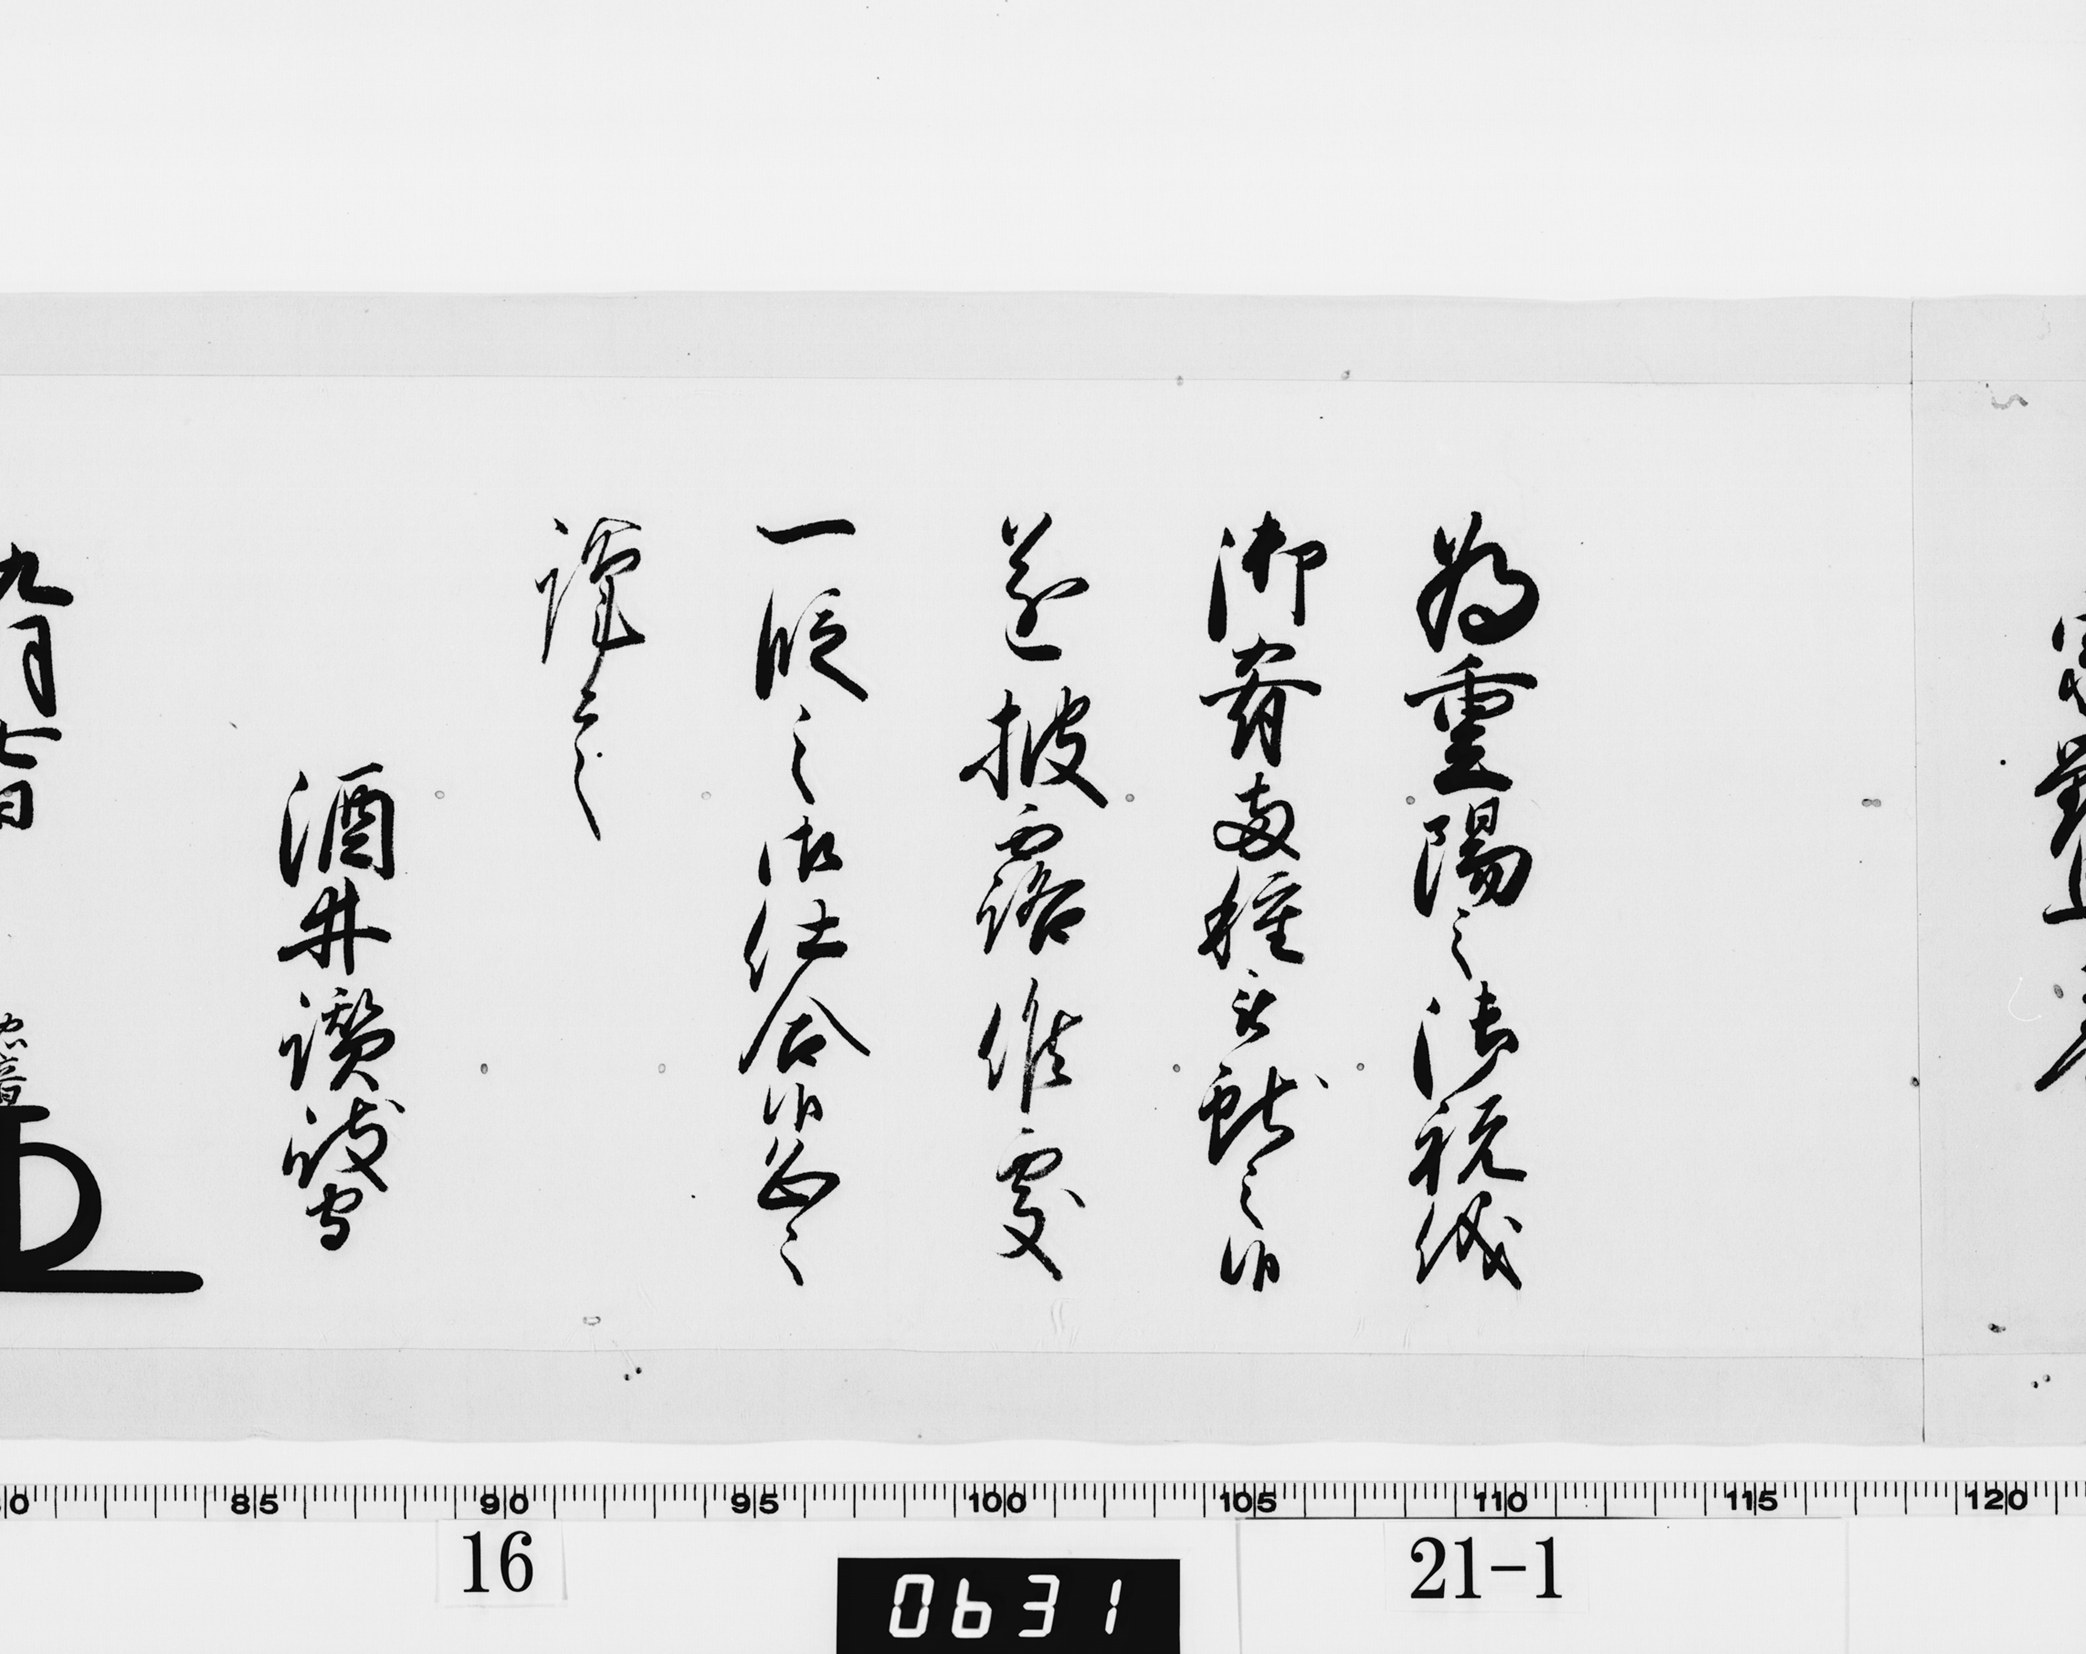 為重陽之御祝儀
御肴両種被献之候
遂披露候処
一段之御仕合候恐々
謹言
酒井讃岐守
九月七日 忠音
80 85 90 95 100 105 110 115 120
16
0631
21-1